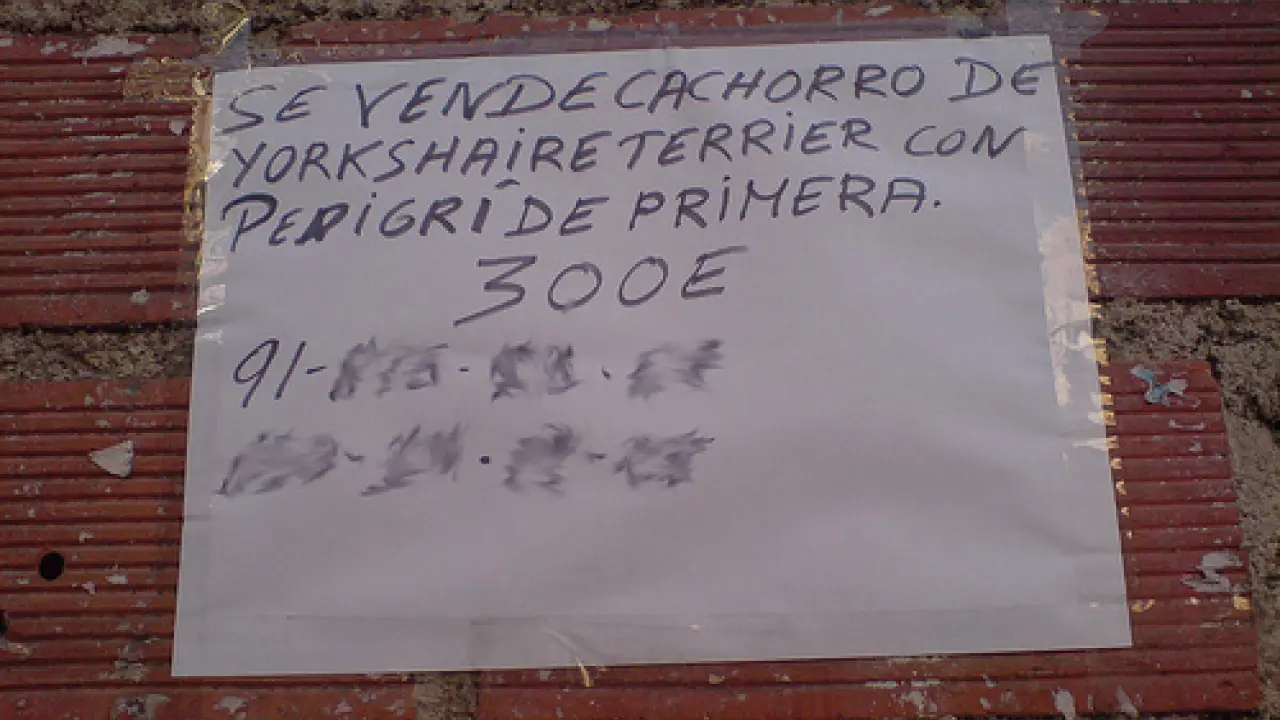 SE VENDE CACHORRO DE
YORKSHAIRE TERRIER CON
PEDIGRÍ DE PRIMERA.
300E
91-